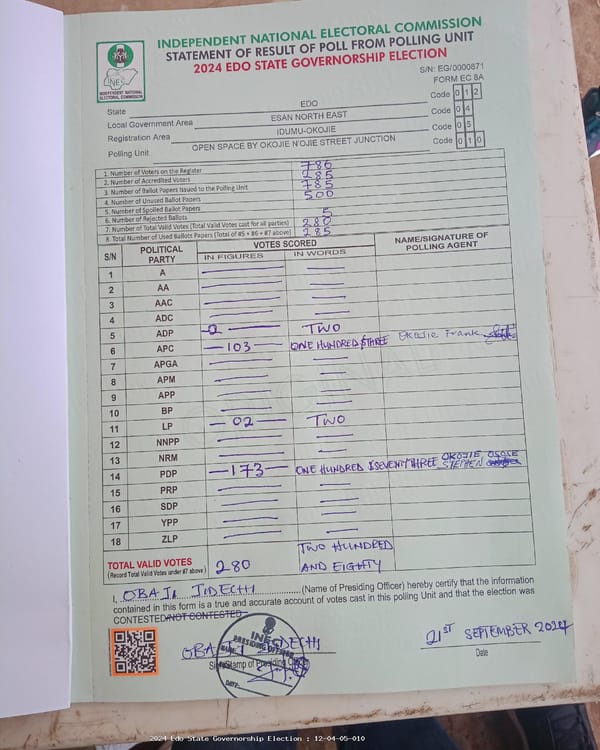 INDEPENDENT NATIONAL ELECTORAL COMMISSION
STATEMENT OF RESULT OF POLL FROM POLLING UNIT
2024 EDO STATE GOVERNORSHIP ELECTION
INEC
INDEPENDENT NATIONAL
ELECTORAL COMMISSION
S/N: EG/0000871
FORM EC 8A
State EDO Code 0 1 2
Local Government Area ESAN NORTH EAST Code 0 4
Registration Area IDUMU-OKOJIE Code 0 5
Polling Unit OPEN SPACE BY OKOJIE N'OJIE STREET JUNCTION Code 0 1 0
1. Number of Voters on the Register 786
2. Number of Accredited Voters 285
3. Number of Ballot Papers Issued to the Polling Unit 785
4. Number of Unused Ballot Papers 500
5. Number of Spoiled Ballot Papers
6. Number of Rejected Ballots 5
7. Number of Total Valid Votes (Total Valid Votes cast for all parties) 280
8. Total Number of Used Ballots Papers (Total of #5 + #6 + #7 above) 285
S/N POLITICAL PARTY VOTES SCORED NAME/SIGNATURE OF POLLING AGENT
IN FIGURES IN WORDS
1 A
2 AA
3 AAC
4 ADC
5 ADP TWO
6 APC 103 ONE HUNDRED & THREE Okojie Frank
7 APGA
8 APM
9 APP
10 BP
11 LP 02 TWO
12 NNPP
13 NRM
14 PDP 173 ONE HUNDRED & SEVENTY THREE OKOJIE OSOSE STEPHEN
15 PRP
16 SDP
17 YPP
18 ZLP
TOTAL VALID VOTES 280 TWO HUNDRED
(Record Total Valid Votes under #7 above) AND EIGHTY
I, OBAJI JIDECHI (Name of Presiding Officer) hereby certify that the information
contained in this form is a true and accurate account of votes cast in this polling Unit and that the election was
CONTESTED/NOT CONTESTED
INEC
PRESIDING OFFICER
NAME:
DATE:
21ST SEPTEMBER 2024
Sign/Stamp of Presiding Officer
Date
2024 Edo State Governorship Election : 12-04-05-010